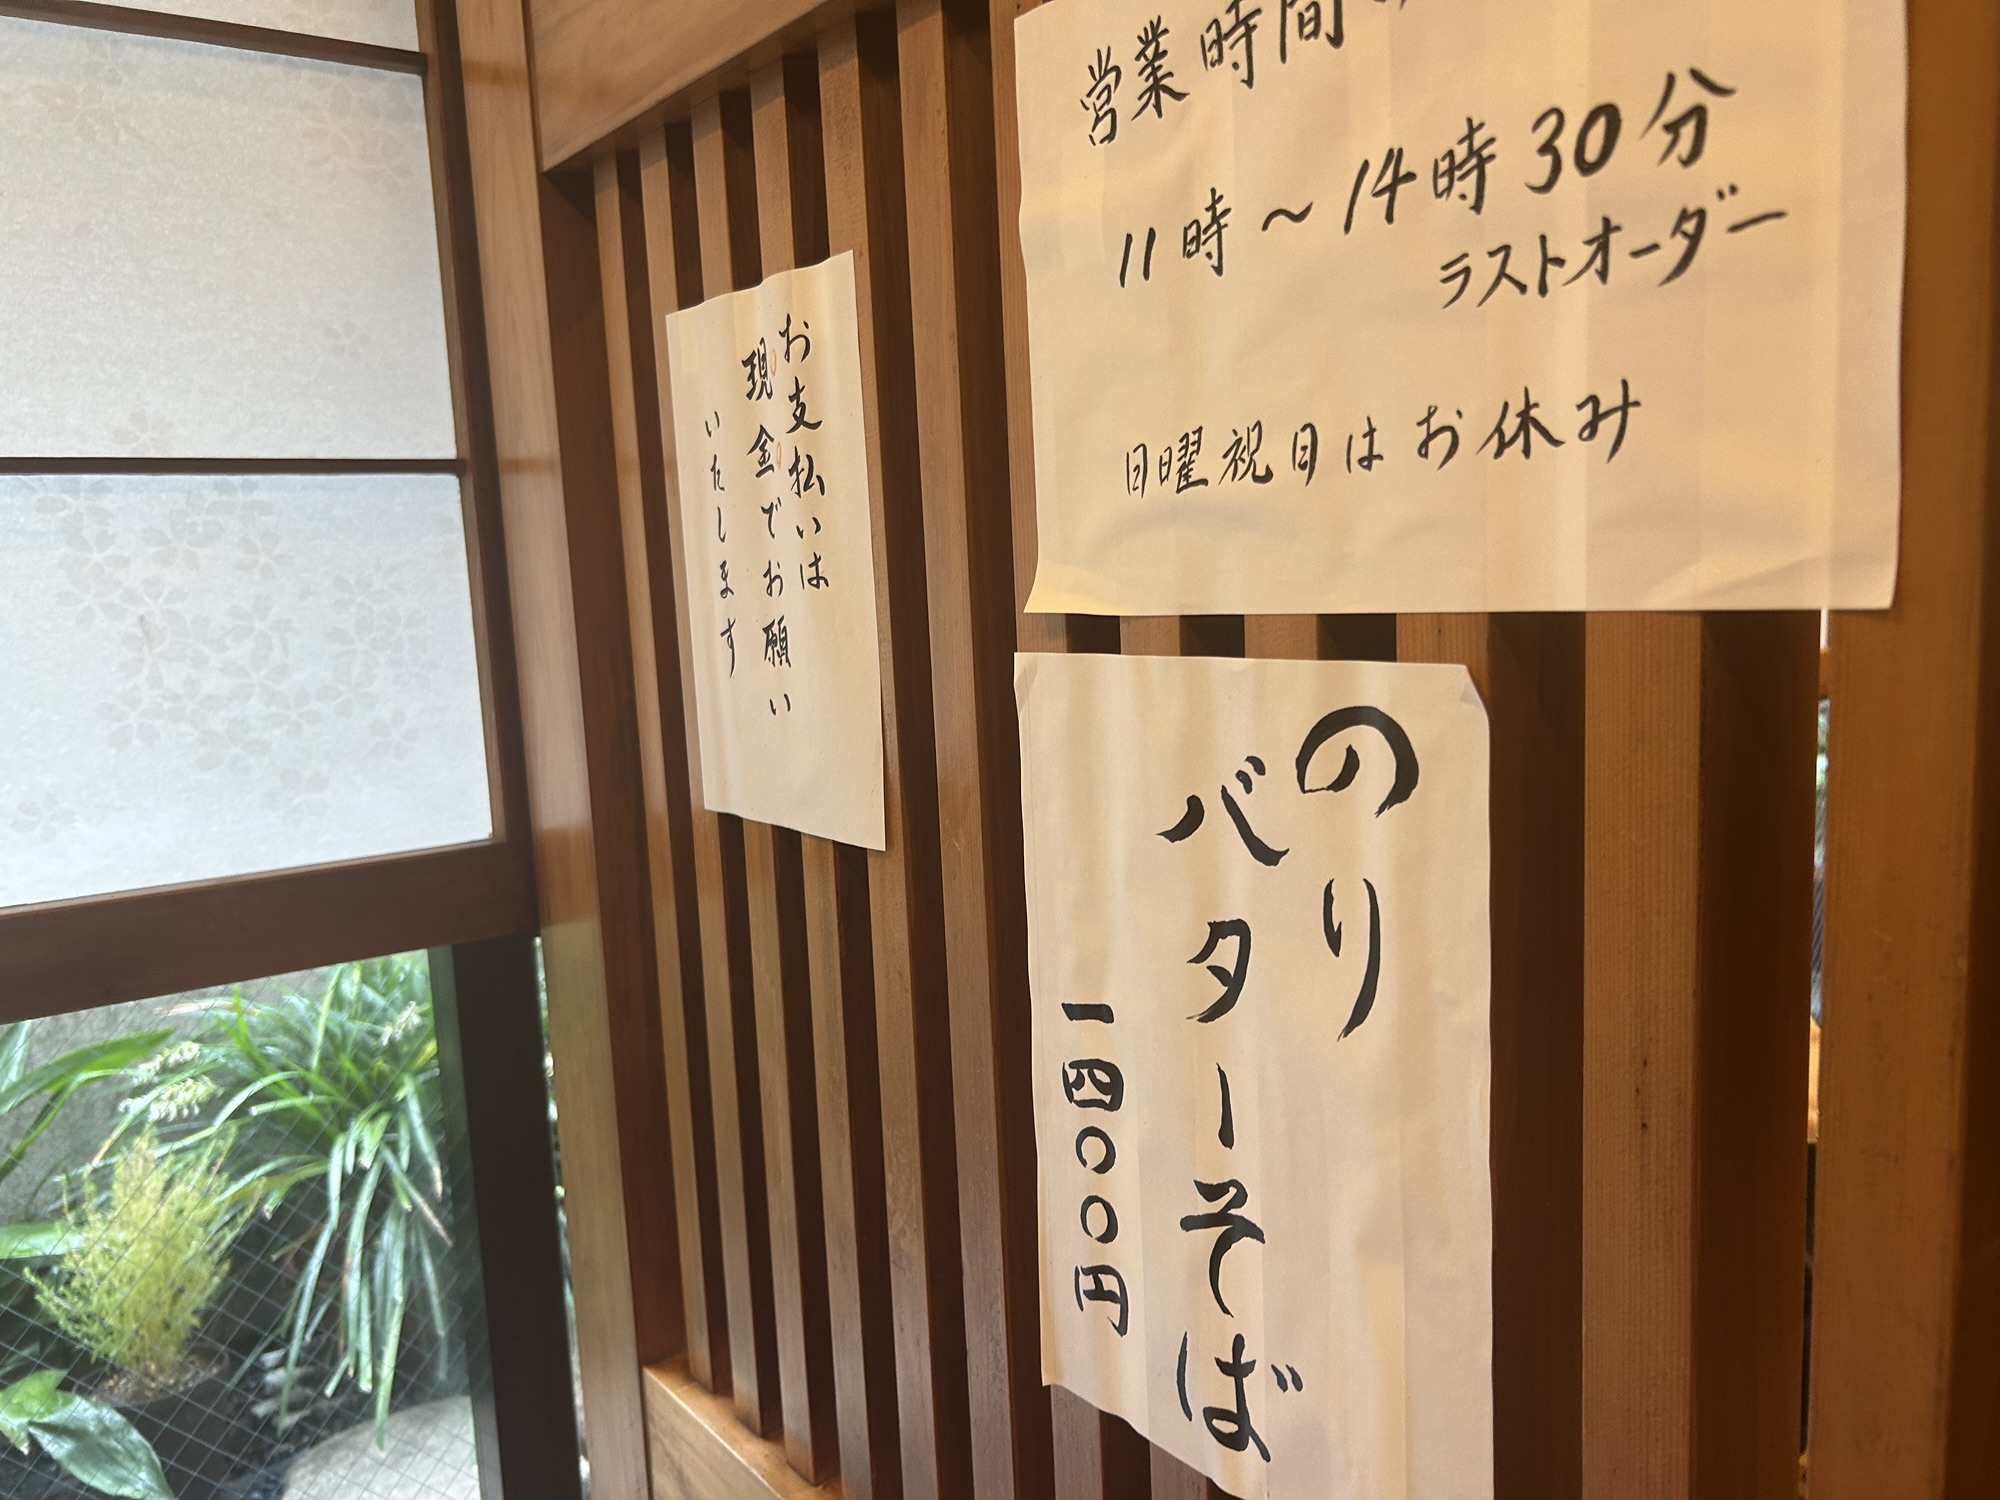 営業時間
11時～14時30分
ラストオーダー
日曜祝日はお休み
お支払いは
現金でお願い
いたします
のり
バターそば
一四〇〇円